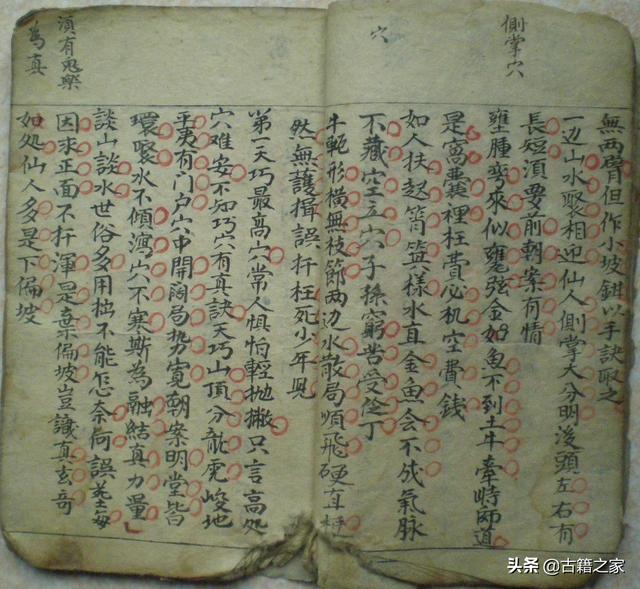 側掌穴
穴
無两臂但作小坡鉗以手訣取之
一边山水聚相迎仙人側掌大分明後頭左右有
長短須要前朝案有情
壅腫弯來似甕弦金如魚不到土牛牽時師道
是窩囊裡枉費心机空費錢
如人扶起筲箕様水直金魚会不成氣脉
不藏空立穴子孫窮苦受伶丁
牛軛形横無枝節两边水散局順飛硬直
然無護揖誤扦枉死少年兒
須有鬼樂
為真
第一天巧最高穴常人惧怕輕抛撇只言高処
穴难安不知巧穴有真訣天巧山頂分龍虎峻地
平夷有门户穴中開阔局势寛朝案明堂皆
環聚水不傾瀉穴不寒斯為融結真力量
談山談水世俗多用拙不能怎奈何誤
因求正面不扦渾是棄偏坡豈識真玄奇
如処仙人多是下偏坡
头条 @古籍之家